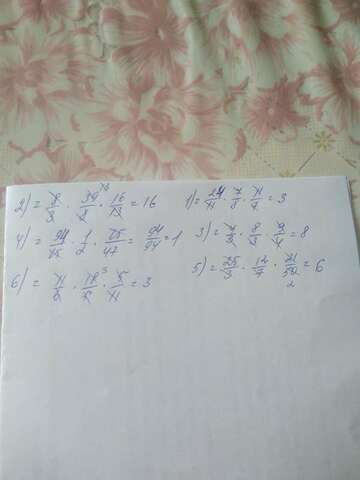 2) = 8/3 · 39/8 · 16/13 = 16
1) = 24/11 · 7/8 · 11/7 = 3
4) = 94/15 · 1/2 · 15/47 = 94/94 = 1
3) = 4/3 · 8/3 · 9/4 = 8
6) = 11/6 · 18/5 · 5/11 = 3
5) = 25/3 · 12/7 · 21/50 = 6